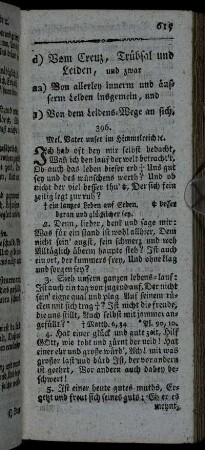 615
d) Vom Creuz, Trübsal und
Leiden, und zwar
aa) Von allerley innerm und äus-
serm Leiden insgemein, und
Von dem Leidens-Wege an sich.
396.
Mel. Vater unser im Himmelreich rc.
Ich hab oft bey mir selbst gedacht,
Wañ ich den lauf der welt betracht't,
Ob auch das leben dieser erd † Uns gut
sey und des wünschens werth? Und ob
nicht der viel besser thu ‡, Der sich fein
zeitig legt zur ruh?
† ein langes leben auf Erden. ‡ besser
daran und glücklicher sey.
2. Denn, lieber, denk und sage mir:
Was für ein stand ist wohl allhier, Dem
nicht sein' angst, sein schmerz und weh
Alltäglich überm haupte steh? Ist auch
ein ort, der kummers frey, Und ohne klag
und sorgen sey?
3. Sieh unsern ganzen lebens-lauf:
Ist auch ein tag von jugend auf, Der nicht
sein' eigne qual und plag Auf seinem rü-
cken mit sich trag †? Ist nicht die freude,
die uns stillt, Auch selbst mit jammer an-
gefüllt? † Matth. 6, 34. Ps. 90, 10.
4. Hat einer glück und gute zeit, Hilf
GOtt, wie tobt und zürnt der neid! Hat
einer ehr und große würd', Ach! mit was
großer last und bürd Ist, der vor andern
ist geehrt, Vor andern auch dabey be-
schwert!
5. Ist einer heute gutes muths, Er-
getzt und freut sich seines guts: